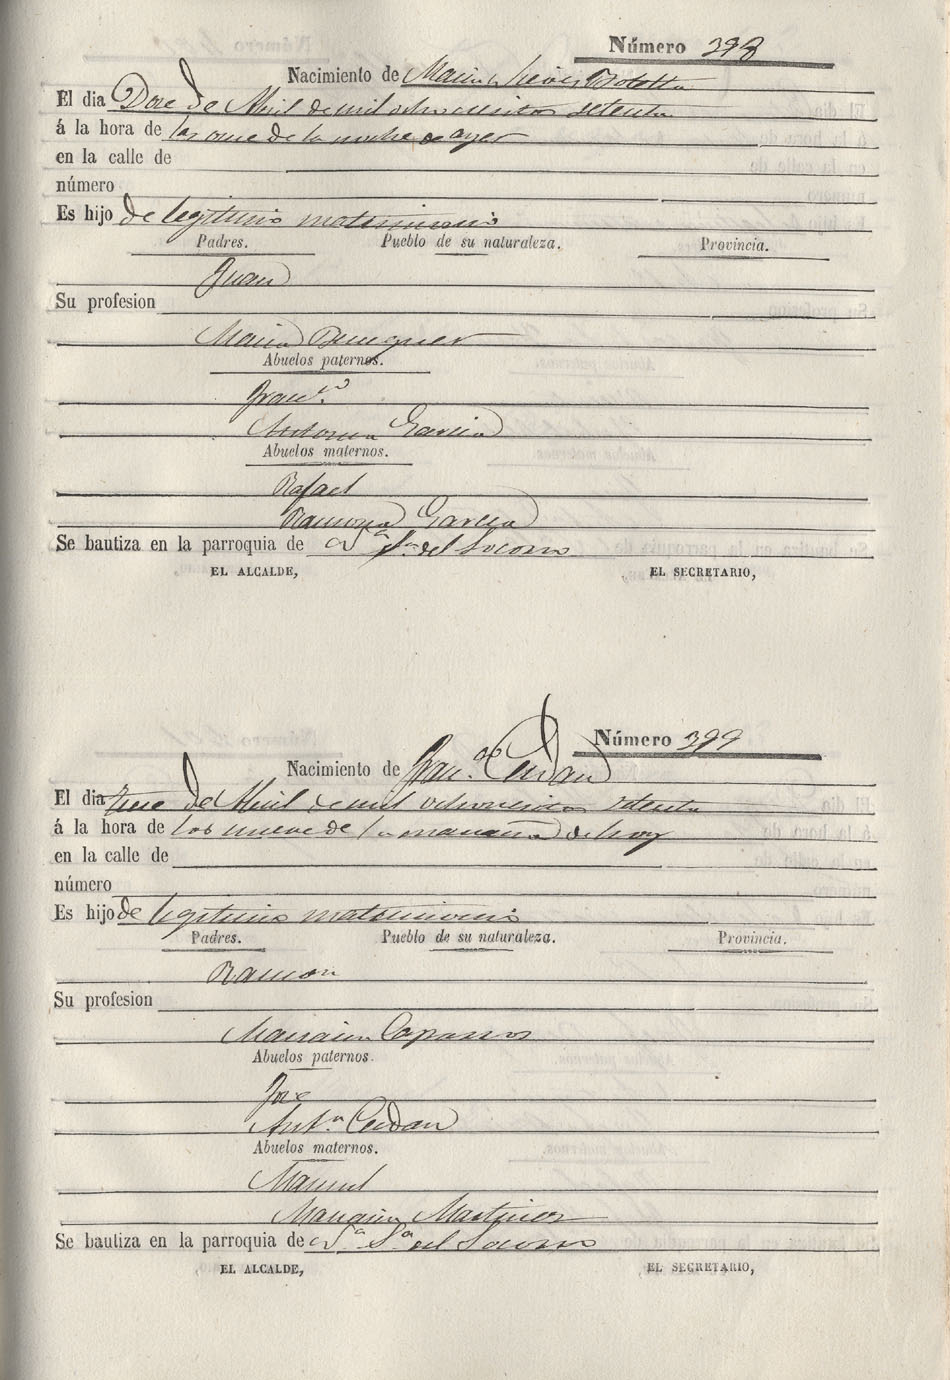 Número 398
Nacimiento de Maria Nieves Botella
El dia Doce de Abril de mil ochocientos setenta
á la hora de las once de la noche de ayer
en la calle de
número
Es hijo de legitimo matrimonio
Padres. Pueblo de su naturaleza. Provincia.
Juan
Su profesion
Maria Berenguer
Abuelos paternos.
Franco.
Antonia Garcia
Abuelos maternos.
Rafael
Ramona Garcia
Se bautiza en la parroquia de Na Sa del Socorro
EL ALCALDE, EL SECRETARIO,
Número 399
Nacimiento de Franco. Cerdan
El dia Trece de Abril de mil ochocientos setenta
á la hora de las nueve de la mañana de hoy
en la calle de
número
Es hijo de legitimo matrimonio
Padres. Pueblo de su naturaleza. Provincia.
Ramon
Su profesion
Caparros
Abuelos paternos.
José
Anta Cerdan
Abuelos maternos.
Manuel
Martinez
Se bautiza en la parroquia de Na. Sa del Socorro
EL ALCALDE, EL SECRETARIO,